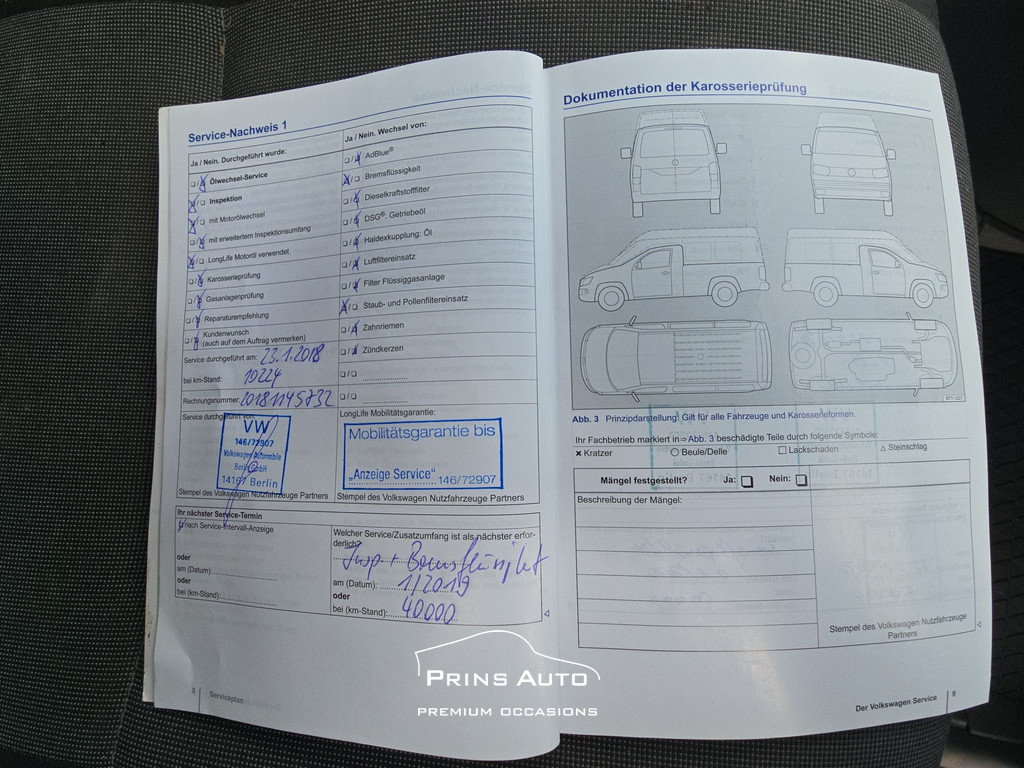 Service-Nachweis 1
Ja / Nein. Durchgeführt wurde:
Ölwechsel-Service
Inspektion
mit Motorölwechsel
mit erweitertem Inspektionsumfang
LongLife Motoröl verwendet
Karosserieprüfung
Gasanlagenprüfung
Reparaturempfehlung
Kundenwunsch
(auch auf dem Auftrag vermerken)
Service durchgeführt am: 23.1.2018
bei km-Stand: 19224
Rechnungsnummer: 20181145732
Service durchgeführt von:
VW
146/72907
Volkswagen Automobile
Berlin GmbH
14167 Berlin
Stempel des Volkswagen Nutzfahrzeuge Partners
Ja / Nein. Wechsel von:
AdBlue®
Bremsflüssigkeit
Dieselkraftstofffilter
DSG®: Getriebeöl
Haldexkupplung: Öl
Luftfiltereinsatz
Filter Flüssiggasanlage
Staub- und Pollenfiltereinsatz
Zahnriemen
Zündkerzen
LongLife Mobilitätsgarantie:
Mobilitätsgarantie bis
„Anzeige Service" 146/72907
Stempel des Volkswagen Nutzfahrzeuge Partners
Ihr nächster Service-Termin
nach Service-Intervall-Anzeige
oder
am (Datum):
oder
bei (km-Stand):
Welcher Service/Zusatzumfang ist als nächster erfor-
derlich?
Insp. + Bremsflüssigkeit
am (Datum): 1/2019
oder
bei (km-Stand): 40.000
8 Serviceplan
Dokumentation der Karosserieprüfung
Abb. 3 Prinzipdarstellung: Gilt für alle Fahrzeuge und Karosserieformen.
Ihr Fachbetrieb markiert in ⇒ Abb. 3 beschädigte Teile durch folgende Symbole:
× Kratzer ○ Beule/Delle □ Lackschaden △ Steinschlag
Mängel festgestellt? Ja: Nein:
Beschreibung der Mängel:
Stempel des Volkswagen Nutzfahrzeuge
Partners
Der Volkswagen Service 9
PRINS AUTO
PREMIUM OCCASIONS